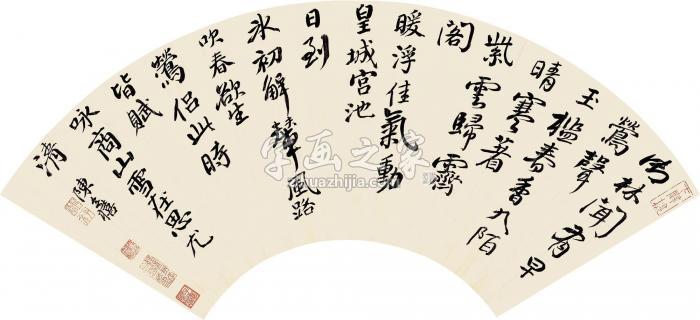 御林聞有早
鶯聲
玉檻春香九陌
晴寒著
紫雲歸霽
閣
暖浮佳氣動
皇城宮池
日到
冰初解輦風路
吹春欲生
鶯侶此時
皆賦
詠商山雪在思尤
清
字画之家
zhuazhijia.com